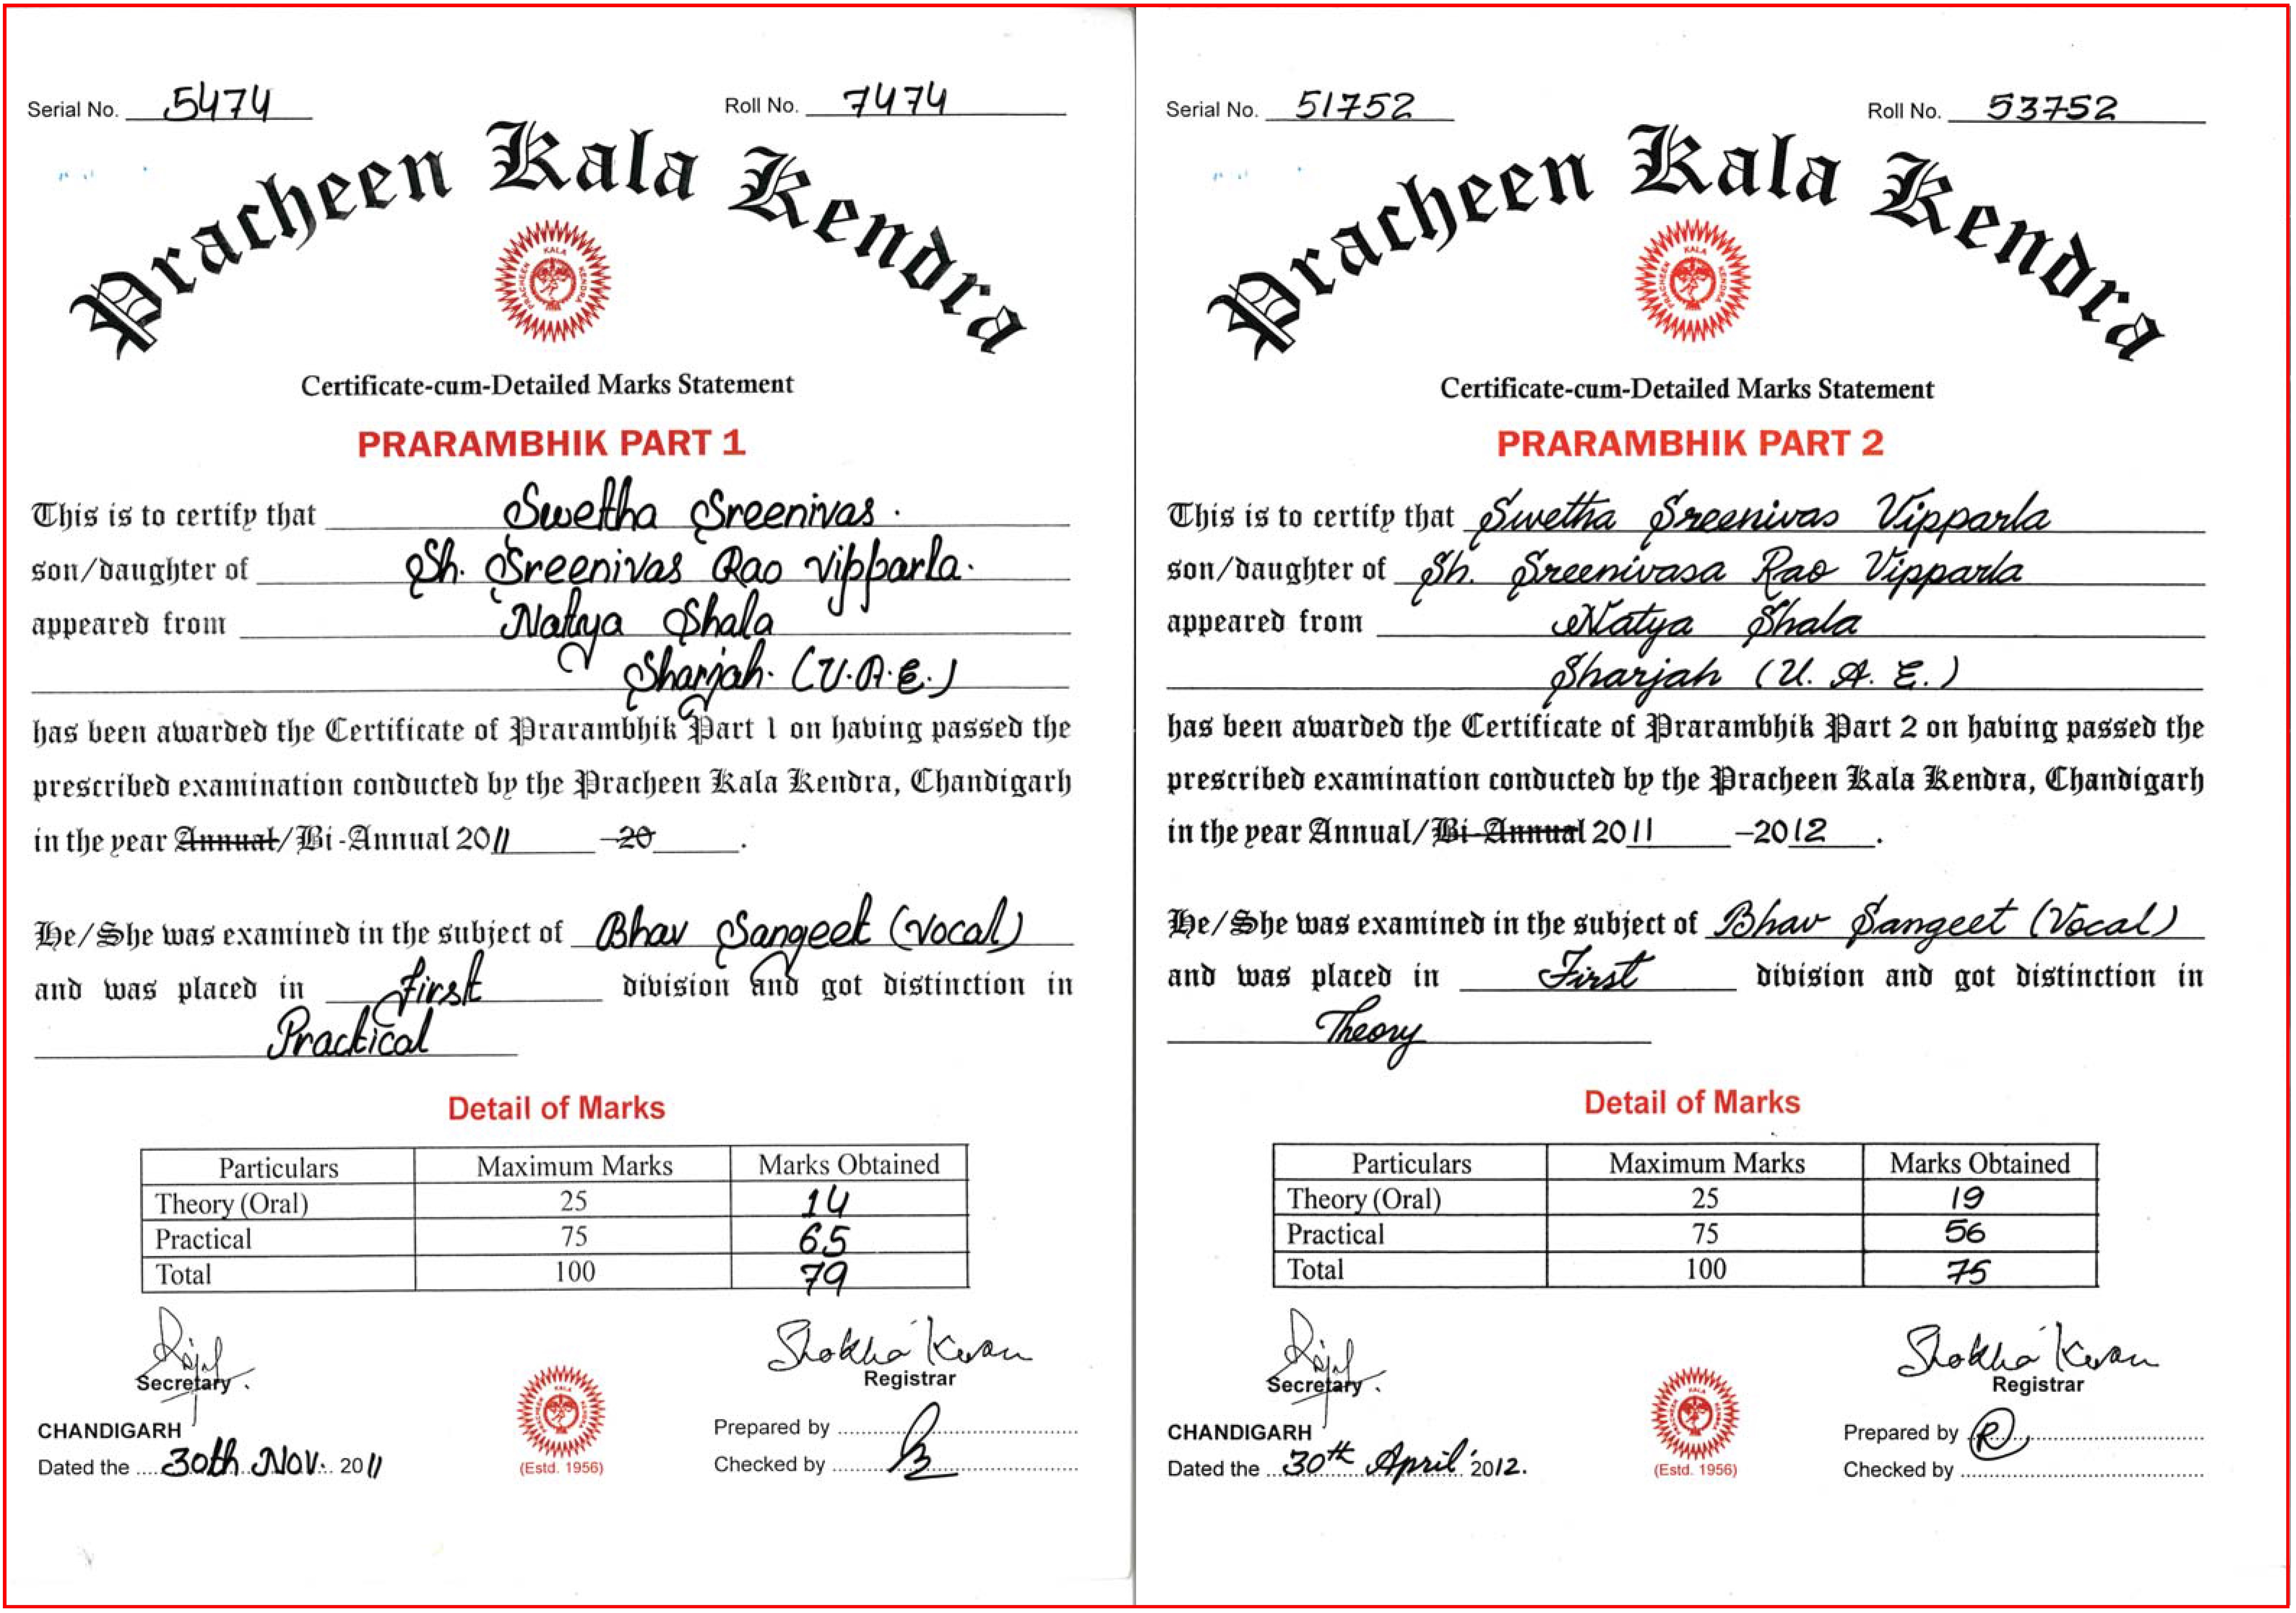 Serial No. 5474 Roll No. 7474
Pracheen Kala Kendra
PRACHEEN KALA KENDRA
Certificate-cum-Detailed Marks Statement
PRARAMBHIK PART 1
This is to certify that Swetha Sreenivas.
son/daughter of Sh. Sreenivas Rao Vipparla.
appeared from Natya Shala
Sharjah. (U.A.E.)
has been awarded the Certificate of Prarambhik Part 1 on having passed the
prescribed examination conducted by the Pracheen Kala Kendra, Chandigarh
in the year Annual/Bi-Annual 2011 -20 .
He/She was examined in the subject of Bhav Sangeet (Vocal)
and was placed in First division and got distinction in
Practical
Detail of Marks
Particulars Maximum Marks Marks Obtained
Theory (Oral) 25 14
Practical 75 65
Total 100 79
Secretary
Registrar
CHANDIGARH
Prepared by
Dated the 30th Nov. 2011
(Estd. 1956)
Checked by
Serial No. 51752 Roll No. 53752
Pracheen Kala Kendra
PRACHEEN KALA KENDRA
Certificate-cum-Detailed Marks Statement
PRARAMBHIK PART 2
This is to certify that Swetha Sreenivas Vipparla
son/daughter of Sh. Sreenivasa Rao Vipparla
appeared from Natya Shala
Sharjah (U.A.E.)
has been awarded the Certificate of Prarambhik Part 2 on having passed the
prescribed examination conducted by the Pracheen Kala Kendra, Chandigarh
in the year Annual/Bi-Annual 2011 -2012 .
He/She was examined in the subject of Bhav Sangeet (Vocal)
and was placed in First division and got distinction in
Theory
Detail of Marks
Particulars Maximum Marks Marks Obtained
Theory (Oral) 25 19
Practical 75 56
Total 100 75
Secretary
Registrar
CHANDIGARH
Prepared by R
Dated the 30th April 2012.
(Estd. 1956)
Checked by